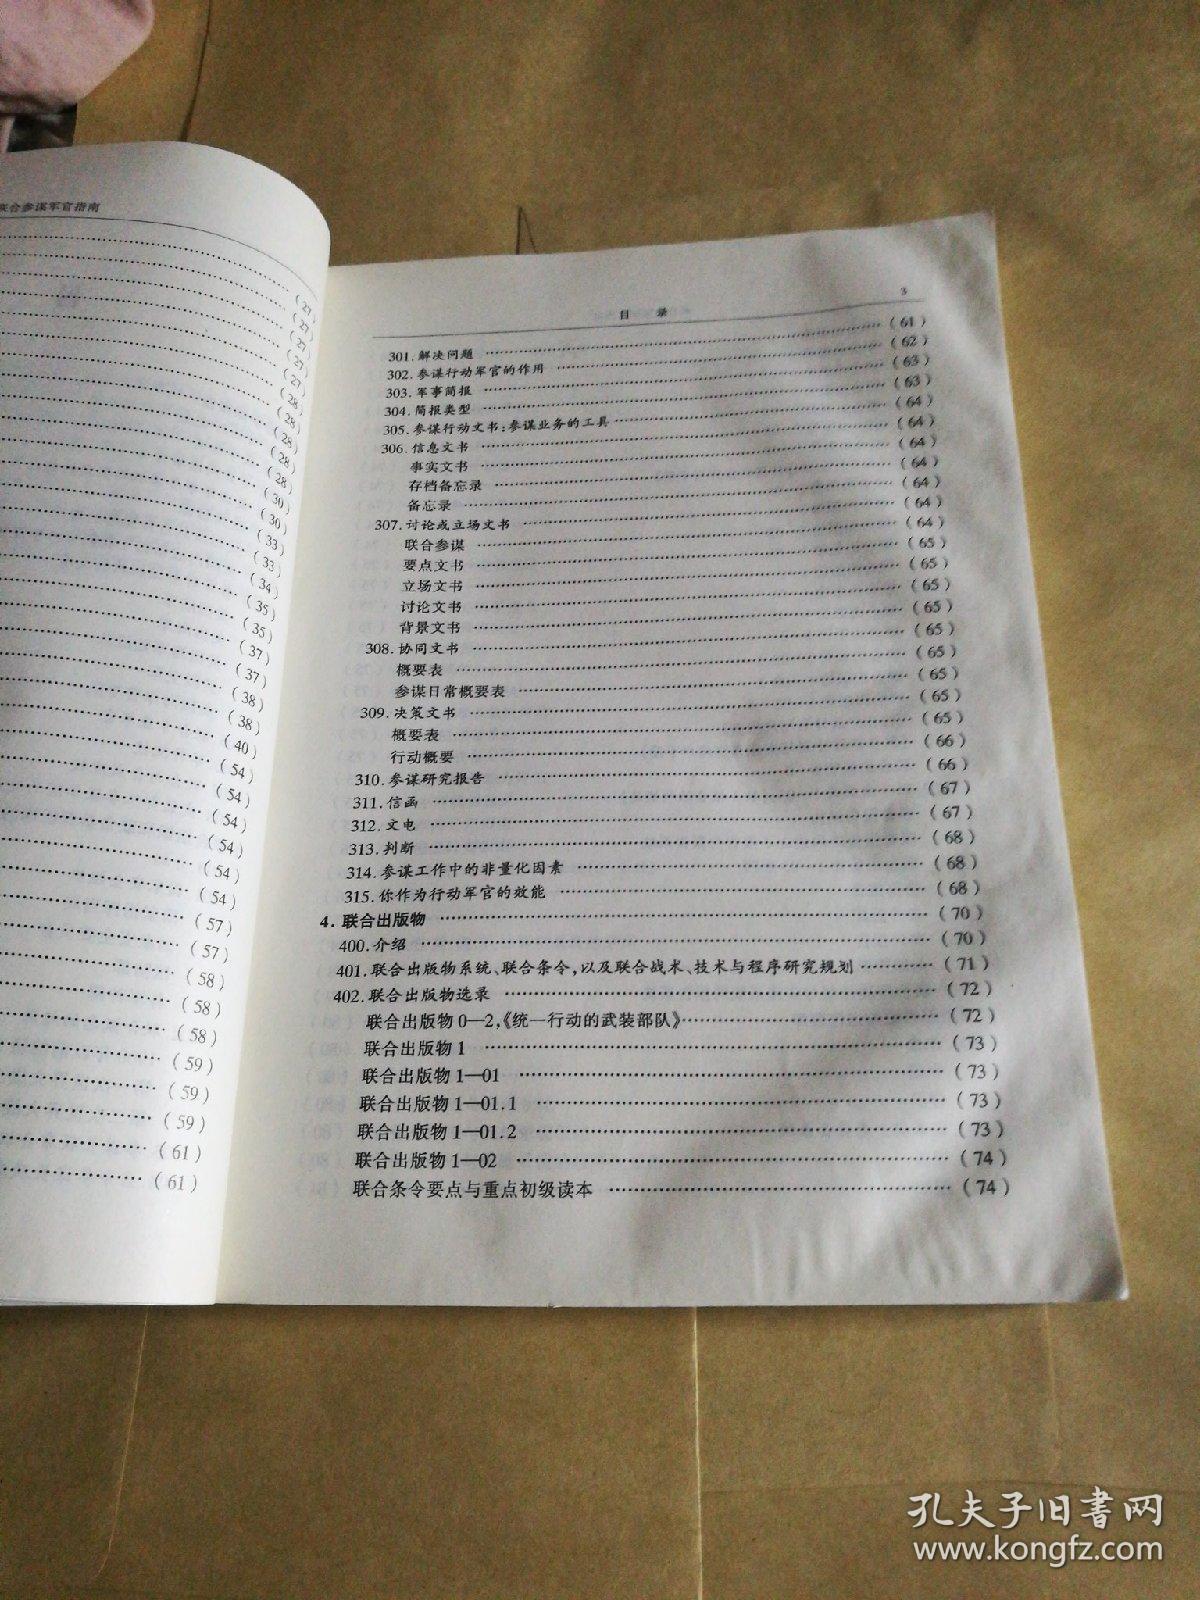 联合参谋军官指南
(27)
(27)
(27)
(27)
(28)
(28)
(28)
(28)
(30)
(30)
(33)
(33)
(34)
(35)
(35)
(37)
(37)
(38)
(38)
(40)
(54)
(54)
(54)
(54)
(54)
(54)
(57)
(57)
(58)
(58)
(58)
(59)
(59)
(59)
(61)
(61)
目 录 3
301.解决问题 (61)
302.参谋行动军官的作用 (62)
303.军事简报 (63)
304.简报类型 (63)
305.参谋行动文书:参谋业务的工具 (64)
306.信息文书 (64)
事实文书 (64)
存档备忘录 (64)
备忘录 (64)
307.讨论或立场文书 (64)
联合参谋 (64)
要点文书 (65)
立场文书 (65)
讨论文书 (65)
背景文书 (65)
308.协同文书 (65)
概要表 (65)
参谋日常概要表 (65)
309.决策文书 (65)
概要表 (65)
行动概要 (66)
310.参谋研究报告 (66)
311.信函 (67)
312.文电 (67)
313.判断 (68)
314.参谋工作中的非量化因素 (68)
315.你作为行动军官的效能 (68)
4.联合出版物 (70)
400.介绍 (70)
401.联合出版物系统、联合条令,以及联合战术、技术与程序研究规划 (71)
402.联合出版物选录 (72)
联合出版物 0—2,《统一行动的武装部队》 (72)
联合出版物 1 (73)
联合出版物 1—01 (73)
联合出版物 1—01.1 (73)
联合出版物 1—01.2 (73)
联合出版物 1—02 (74)
联合条令要点与重点初级读本 (74)
孔夫子旧书网
www.kongfz.com